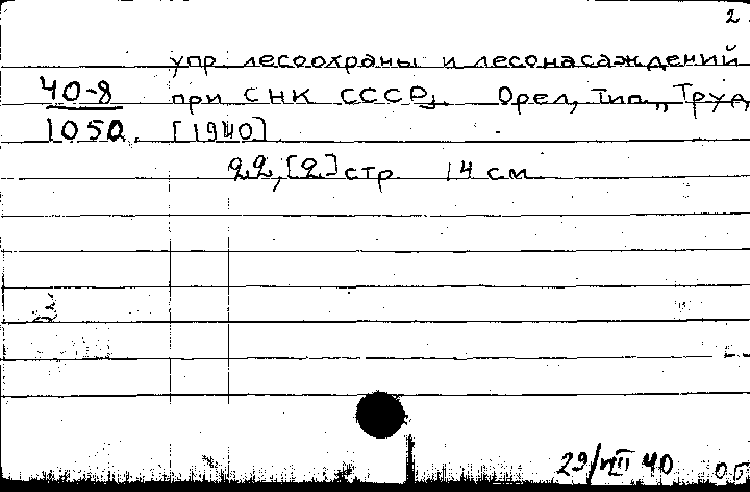 2.
упр. лесоохраны и лесонасаждений
40-8 при СНК СССР]. Орел, тип. „Труд
1050. [1940]
22, [2] стр. 14 см.
29/VII 40 об